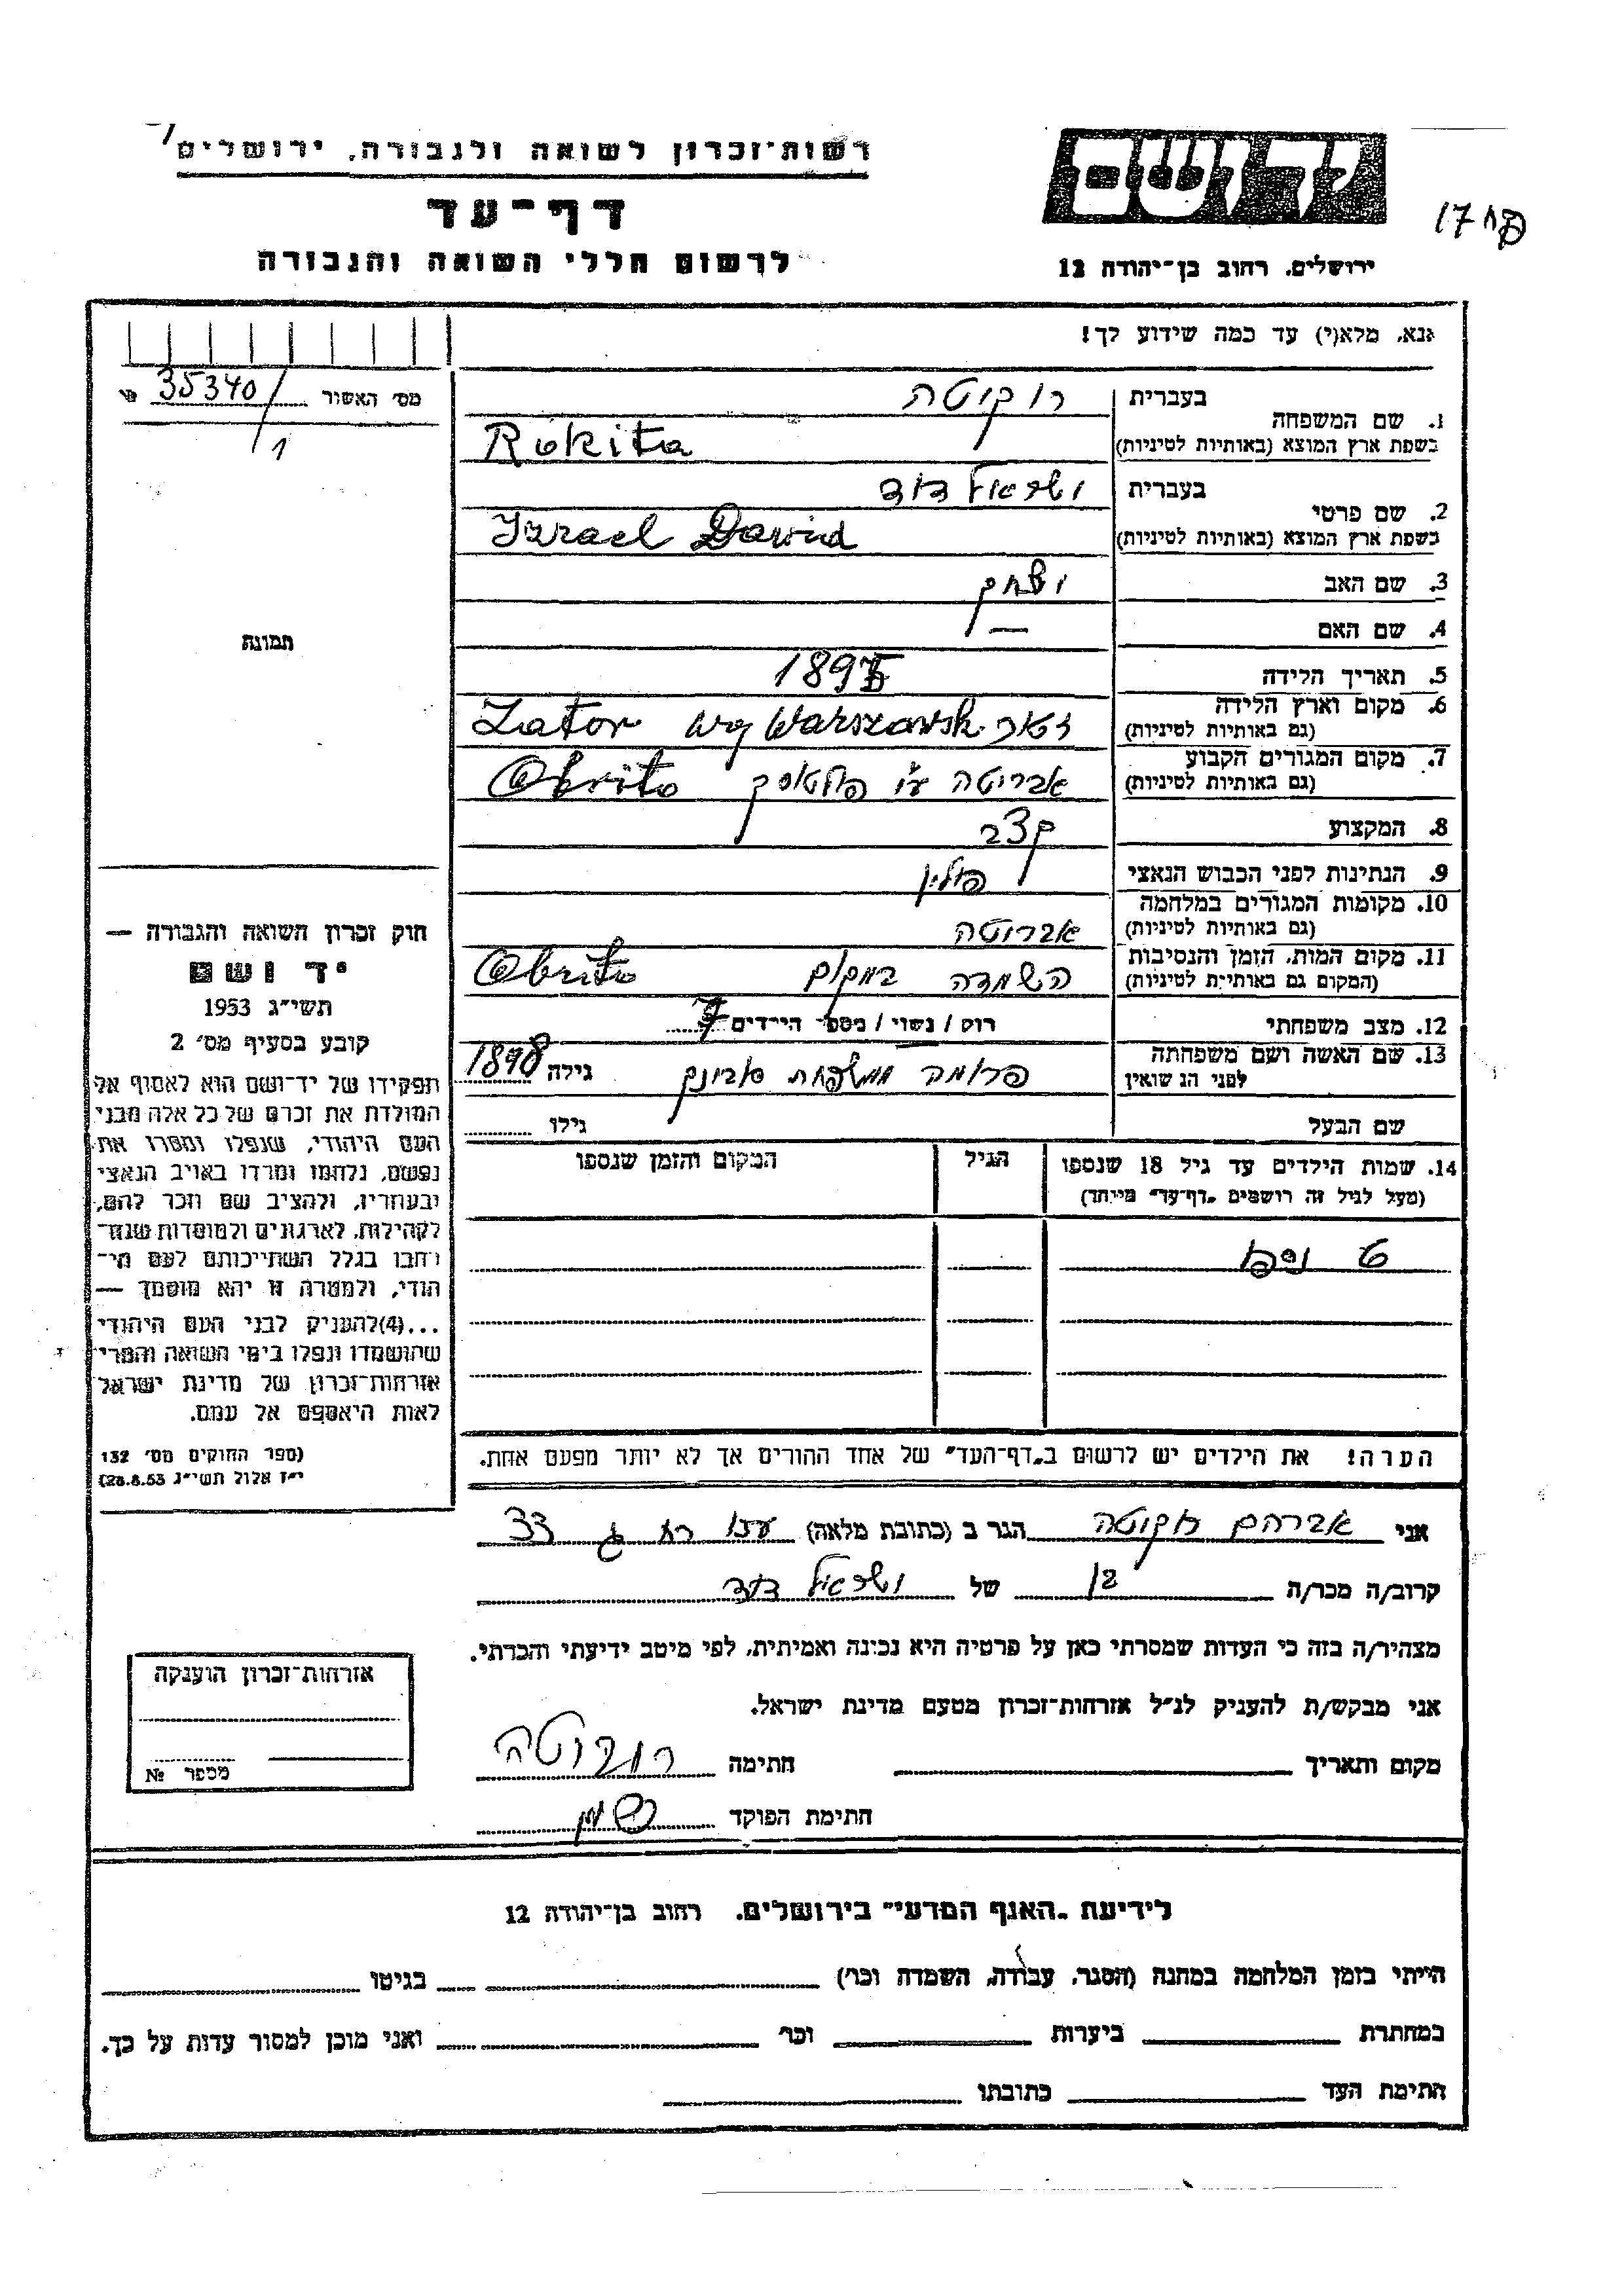 רשות־זכרון לשואה ולגבורה, ירושלים
דף־עד
לרשום חללי השואה והגבורה
יד ושם
ירושלים, רחוב בן־יהודה 12
נא, מלא(י) עד כמה שידוע לך!
מס׳ האשור 35340/1 №
תמונה
1. שם המשפחה
בעברית רוקיטה
בשפת ארץ המוצא (באותיות לטיניות) Rokita
2. שם פרטי
בעברית ישראל דוד
בשפת ארץ המוצא (באותיות לטיניות) Izrael Dawid
3. שם האב יצחק
4. שם האם —
5. תאריך הלידה 1895
6. מקום וארץ הלידה
(גם באותיות לטיניות) Zator Warszawsk
7. מקום המגורים הקבוע
(גם באותיות לטיניות) אבריטה ע״י פולטוסק Obrito
8. המקצוע קצב
9. הנתינות לפני הכבוש הנאצי פולין
10. מקומות המגורים במלחמה
(גם באותיות לטיניות) אבריטה
11. מקום המות, הזמן והנסיבות
(המקום גם באותיות לטיניות) השמדה במקום Obrito
12. מצב משפחתי רוק / נשוי / מספר הילדים 7
13. שם האשה ושם משפחתה
לפני הנשואין פרומה ממשפחת גילה 1898
שם הבעל גילו
14. שמות הילדים עד גיל 18 שנספו
(מעל לגיל זה רושמים „דף־עד״ מייחד)
הגיל
המקום והזמן שנספו
נספו
הערה! את הילדים יש לרשום ב„דף־העד״ של אחד ההורים אך לא יותר מפעם אחת.
חוק זכרון השואה והגבורה —
יד ושם
תשי״ג 1953
קובע בסעיף מס׳ 2
תפקידו של יד־ושם הוא לאסוף אל
המולדת את זכרם של כל אלה מבני
העם היהודי, שנפלו ומסרו את
נפשם, נלחמו ומרדו באויב הנאצי
ובעוזריו, ולהציב שם וזכר להם,
לקהילות, לארגונים ולמוסדות שנח־
רבו בגלל השתייכותם לעם הי־
הודי, ולמטרה זו יהא מוסמך —
...(4)להעניק לבני העם היהודי
שהושמדו ונפלו בימי השואה והמרי
אזרחות־זכרון של מדינת ישראל
לאות היאספם אל עמם.
(ספר החוקים מס׳ 132
י״ז אלול תשי״ג 28.8.53)
אני אברהם רוקיטה הגר ב (כתובת מלאה) עכו 33
קרוב/ה מכר/ה בן של ישראל דוד
מצהיר/ה בזה כי העדות שמסרתי כאן על פרטיה היא נכונה ואמיתית, לפי מיטב ידיעתי והכרתי.
אני מבקש/ת להעניק לנ״ל אזרחות־זכרון מטעם מדינת ישראל.
מקום ותאריך חתימה רוקיטה
חתימת הפוקד
אזרחות־זכרון הוענקה
מספר №
לידיעת „האגף המדעי״ בירושלים, רחוב בן־יהודה 12
הייתי בזמן המלחמה במחנה (הסגר, עבודה, השמדה וכו׳) בגיטו
במחתרת ביערות וכו׳ ואני מוכן למסור עדות על כך.
חתימת העד כתובתו